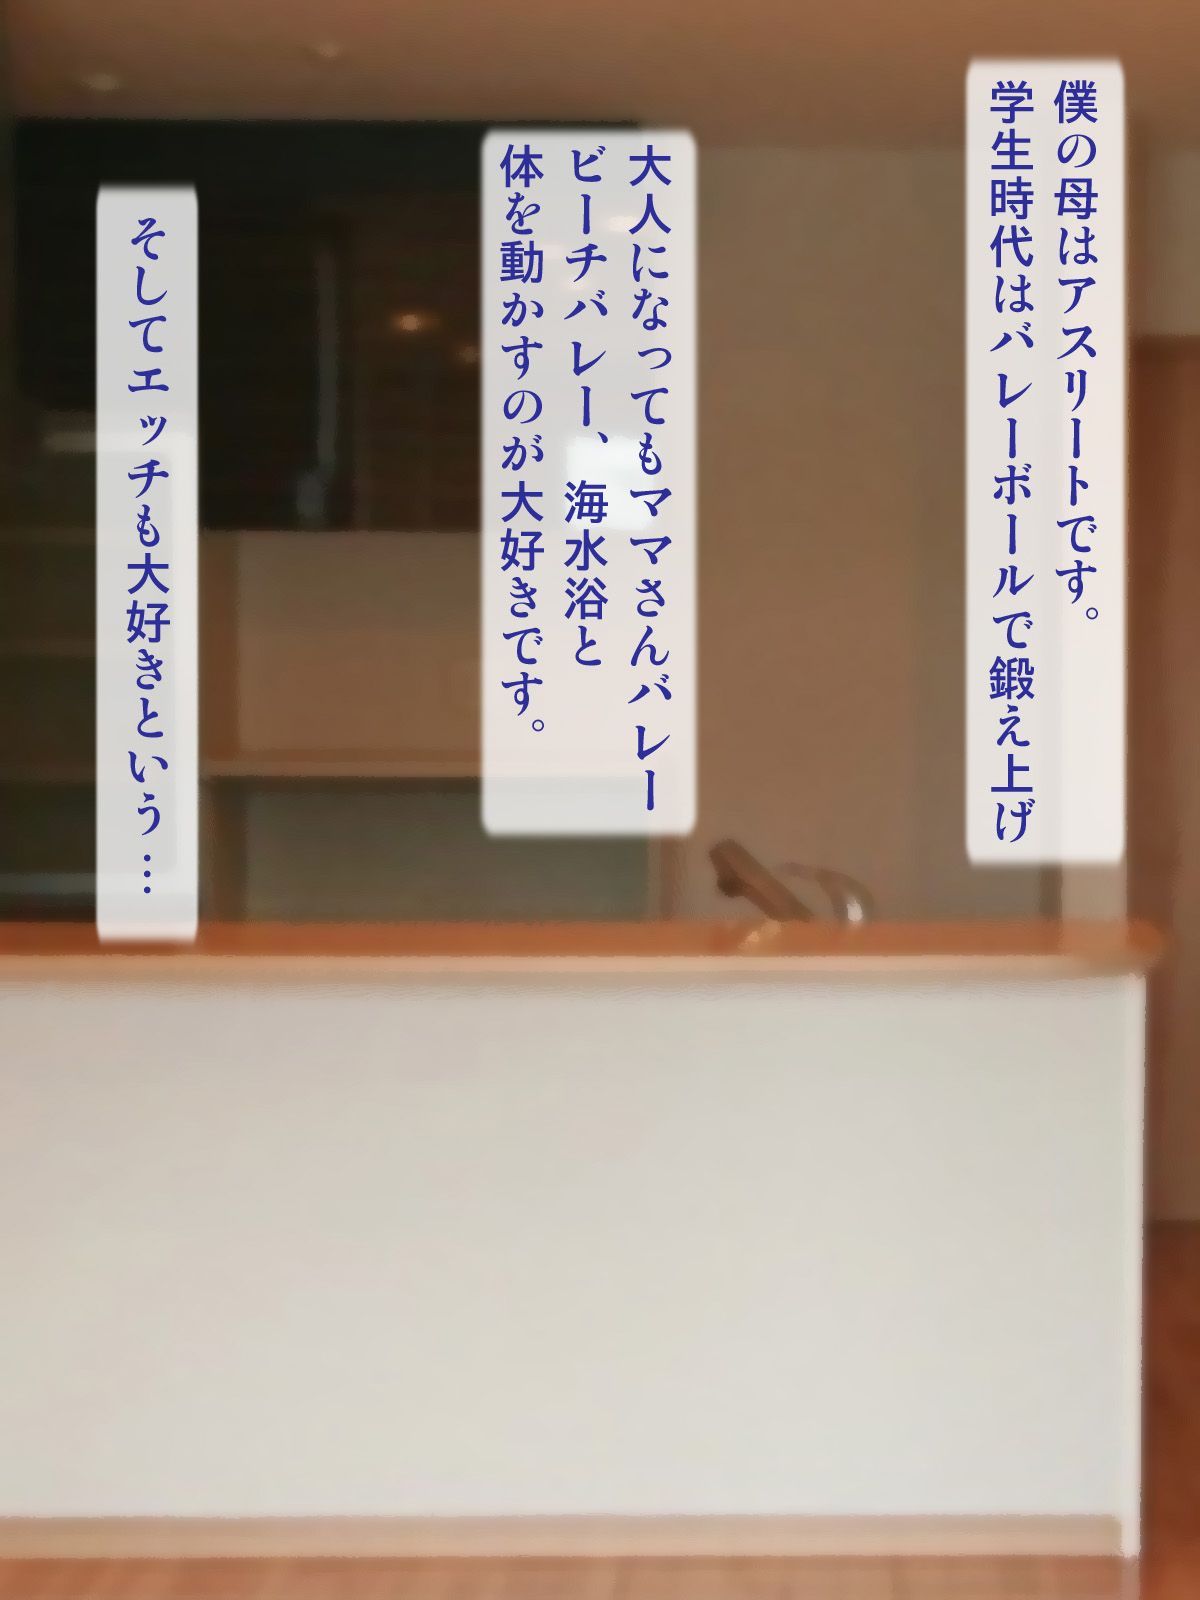 僕の母はアスリートです。
学生時代はバレーボールで鍛え上げ
大人になってもママさんバレー
ビーチバレー、海水浴と
体を動かすのが大好きです。
そしてエッチも大好きという…